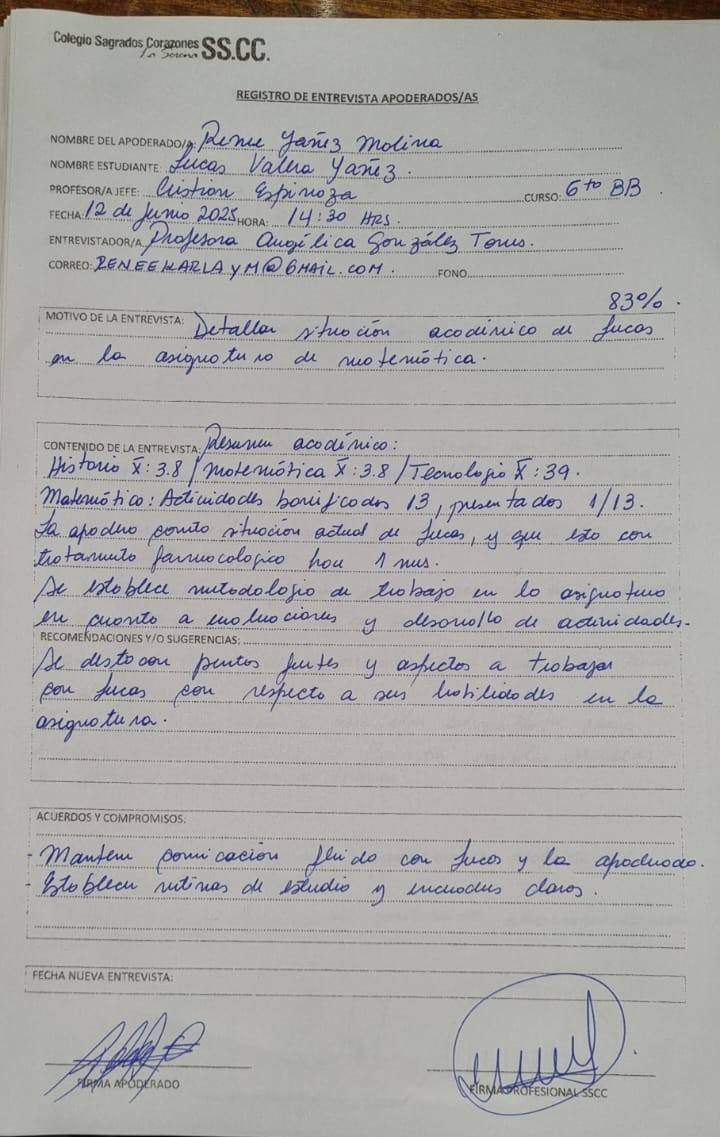 Colegio Sagrados Corazones SS.CC.
La Serena
REGISTRO DE ENTREVISTA APODERADOS/AS
NOMBRE DEL APODERADO/A: Renee Yañez Molina
NOMBRE ESTUDIANTE: Lucas Valera Yañez.
PROFESOR/A JEFE: Cristian Espinoza CURSO: 6to BB.
FECHA: 12 de Junio 2025 HORA: 14:30 HRS.
ENTREVISTADOR/A Profesora Angélica González Torres.
CORREO: RENEEKARLAYM@GMAIL.COM. FONO
83%.
MOTIVO DE LA ENTREVISTA: Detallar situación académico de Lucas
en la asignatura de matemática.
CONTENIDO DE LA ENTREVISTA: Resumen académico:
Historia X̄: 3.8 / Matemática X̄: 3.8 / Tecnología X̄: 39.
Matemático: Actividades bonificados 13, presentados 1/13.
La apodera comita situación actual de Lucas, y que esto con
tratamiento farmocologico hace 1 mes.
Se establece metodologia de trabajo en la asignatura
en cuanto a evaluaciones y desarrollo de actividades.
RECOMENDACIONES Y/O SUGERENCIAS:
Se destacan puntos fuertes y aspectos a trabajar
con Lucas con respecto a sus habilidades en la
asignatura.
ACUERDOS Y COMPROMISOS:
- Mantener comicación fluida con Lucas y la apoderado.
- Establecer rutinas de estudio y encuadres claros.
FECHA NUEVA ENTREVISTA:
FIRMA APODERADO
FIRMA PROFESIONAL SSCC